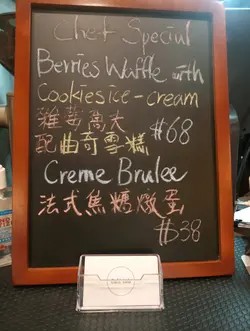 Chef Special
Berries Waffle with
Cookies ice-cream
雜莓窩夫
配曲奇雪糕 $68
Creme Brulee
法式焦糖燉蛋
$38